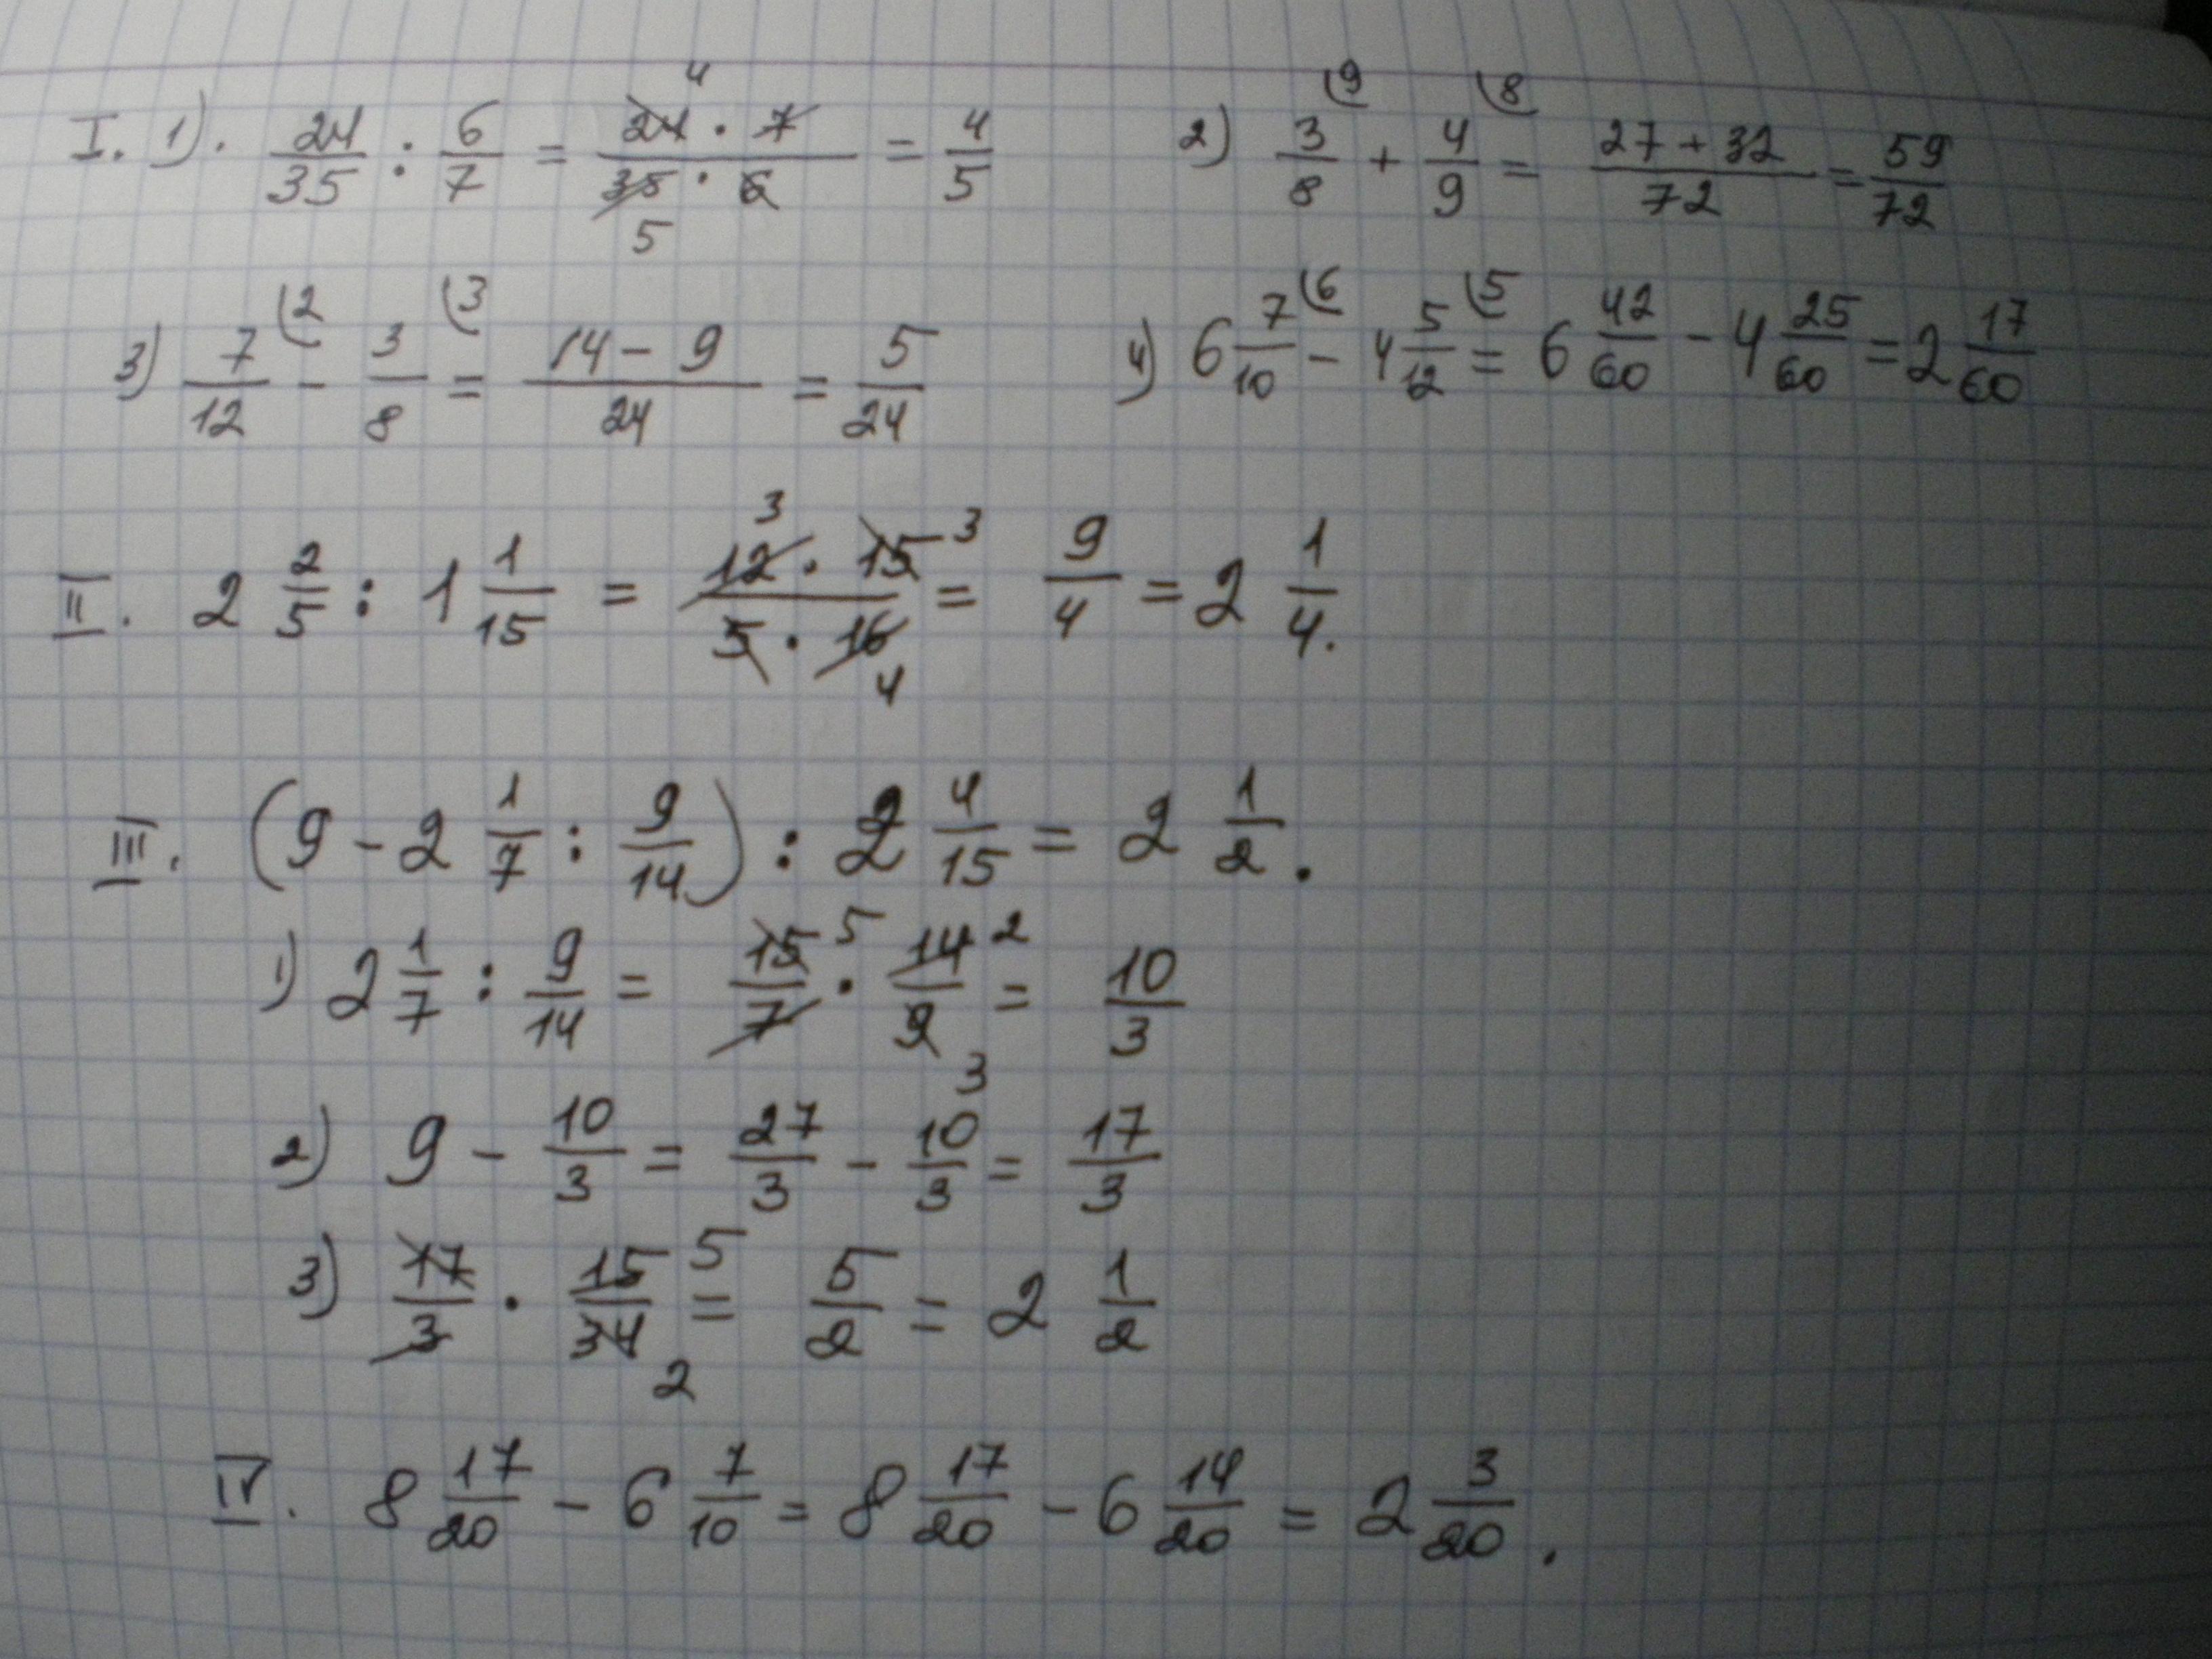 I. 1). 24/35 : 6/7 = 24 · 7 / 35 · 6 = 4/5 (4, 5)
2) 3/8 (9 + 4/9 (8 = 27 + 32 / 72 = 59/72
3) 7/12 (2 - 3/8 (3 = 14 - 9 / 24 = 5/24
4) 6 7/10 (6 - 4 5/12 (5 = 6 42/60 - 4 25/60 = 2 17/60
II. 2 2/5 : 1 1/15 = 12 · 15 / 5 · 16 = 9/4 = 2 1/4. (3, 3, 4)
III. (9 - 2 1/7 : 9/14) : 2 4/15 = 2 1/2.
1) 2 1/7 : 9/14 = 15/7 · 14/9 = 10/3 (5, 2, 3)
2) 9 - 10/3 = 27/3 - 10/3 = 17/3
3) 17/3 · 15/34 = 5/2 = 2 1/2 (5, 2)
IV. 8 17/20 - 6 7/10 = 8 17/20 - 6 14/20 = 2 3/20.